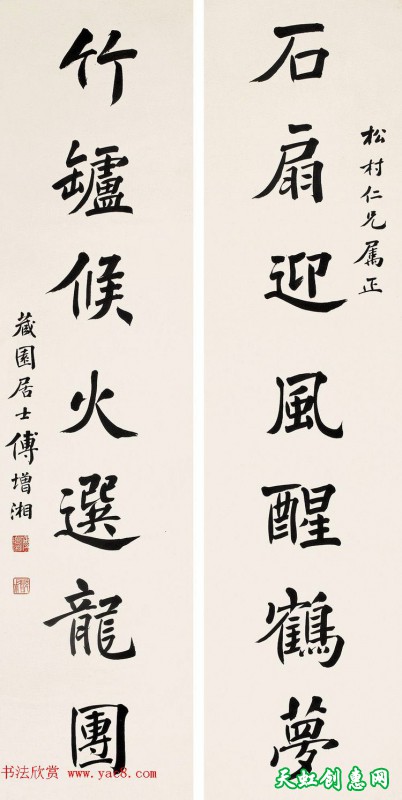 松村仁兄属正
石扇迎風醒鶴夢
竹罏候火選龍團
藏園居士傅增湘
书法欣赏 www.yac8.com
天虹创惠网